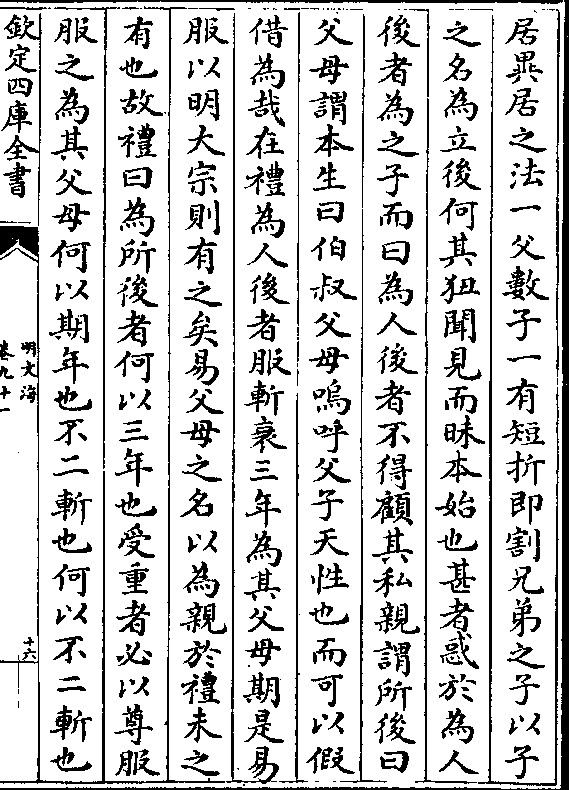 居異居之法一父數子一有短折即割兄弟之子以子
之名為立後何其狃聞見而昧本始也甚者惑於為人
後者為之子而曰為人後者不得顧其私親謂所後曰
父母謂本生曰伯叔父母嗚呼父子天性也而可以假
借為哉在禮為人後者服斬衰三年為其父母期是易
服以明大宗則有之矣易父母之名以為親於禮未之
有也故禮曰為所後者何以三年也受重者必以尊服
服之為其父母何以期年也不二斬也何以不二斬也
欽定四庫全書
明文海
卷九十一
十六